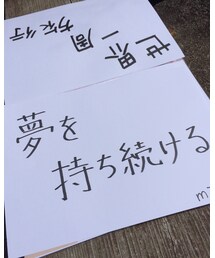 世界
一周
旅行
夢を
持ち続ける